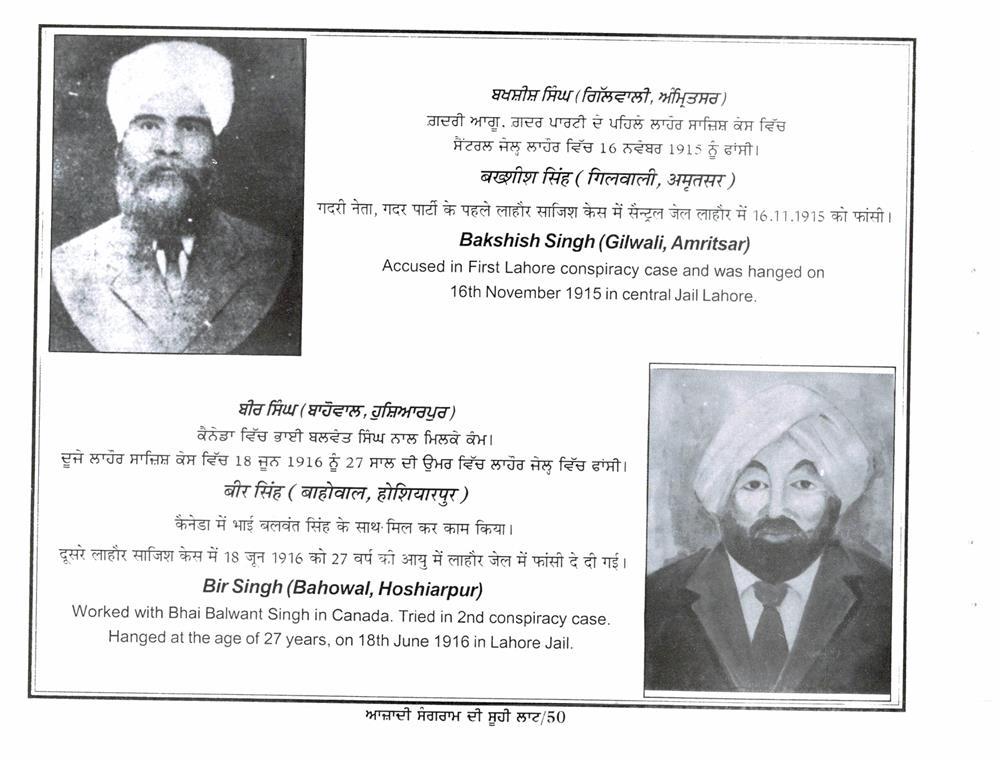 ਬਖਸ਼ੀਸ਼ ਸਿੰਘ (ਗਿੱਲਵਾਲੀ, ਅੰਮ੍ਰਿਤਸਰ)
ਗ਼ਦਰੀ ਆਗੂ. ਗ਼ਦਰ ਪਾਰਟੀ ਦੇ ਪਹਿਲੇ ਲਾਹੌਰ ਸਾਜ਼ਿਸ਼ ਕੇਸ ਵਿੱਚ
ਸੈਂਟਰਲ ਜੇਲ੍ਹ ਲਾਹੌਰ ਵਿੱਚ 16 ਨਵੰਬਰ 1915 ਨੂੰ ਫਾਂਸੀ।
बख्शीश सिंह ( गिलवाली, अमृतसर )
गदरी नेता, गदर पार्टी के पहले लाहौर साजिश केस में सैन्ट्रल जेल लाहौर में 16.11.1915 को फांसी।
Bakshish Singh (Gilwali, Amritsar)
Accused in First Lahore conspiracy case and was hanged on
16th November 1915 in central Jail Lahore.
ਬੀਰ ਸਿੰਘ (ਬਾਹੋਵਾਲ, ਹੁਸ਼ਿਆਰਪੁਰ)
ਕੈਨੇਡਾ ਵਿੱਚ ਭਾਈ ਬਲਵੰਤ ਸਿੰਘ ਨਾਲ ਮਿਲਕੇ ਕੰਮ।
ਦੂਜੇ ਲਾਹੌਰ ਸਾਜ਼ਿਸ਼ ਕੇਸ ਵਿੱਚ 18 ਜੂਨ 1916 ਨੂੰ 27 ਸਾਲ ਦੀ ਉਮਰ ਵਿੱਚ ਲਾਹੌਰ ਜੇਲ੍ਹ ਵਿੱਚ ਫਾਂਸੀ।
बीर सिंह ( बाहोवाल, होशियारपुर )
कैनेडा में भाई बलवंत सिंह के साथ मिल कर काम किया।
दूसरे लाहौर साजिश केस में 18 जून 1916 को 27 वर्ष की आयु में लाहौर जेल में फांसी दे दी गई।
Bir Singh (Bahowal, Hoshiarpur)
Worked with Bhai Balwant Singh in Canada. Tried in 2nd conspiracy case.
Hanged at the age of 27 years, on 18th June 1916 in Lahore Jail.
ਆਜ਼ਾਦੀ ਸੰਗਰਾਮ ਦੀ ਸੂਹੀ ਲਾਟ/50